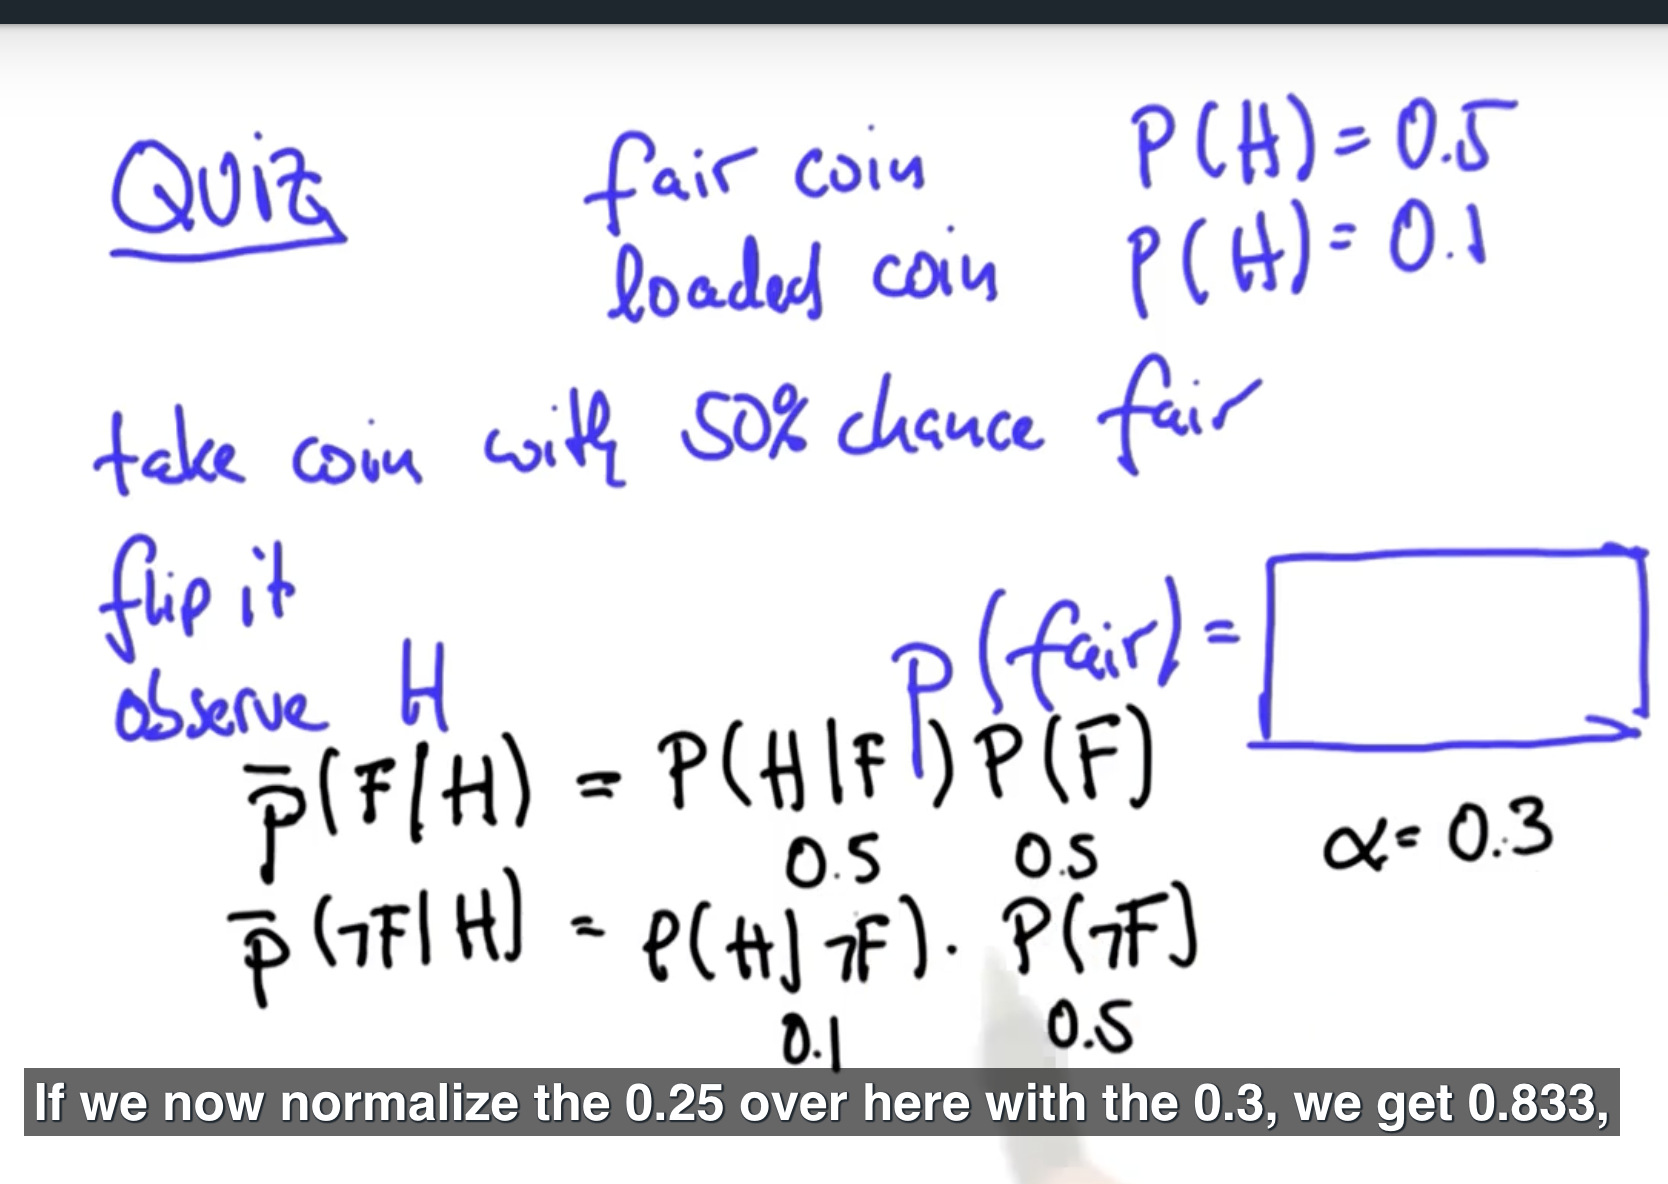 Quiz
fair coin P(H) = 0.5
loaded coin P(H) = 0.1
take coin with 50% chance fair
flip it
observe H
P(fair) =
p̅(F|H) = P(H|F) P(F)
0.5 0.5
α = 0.3
p̅(¬F|H) = P(H|¬F) · P(¬F)
0.1 0.5
If we now normalize the 0.25 over here with the 0.3, we get 0.833,